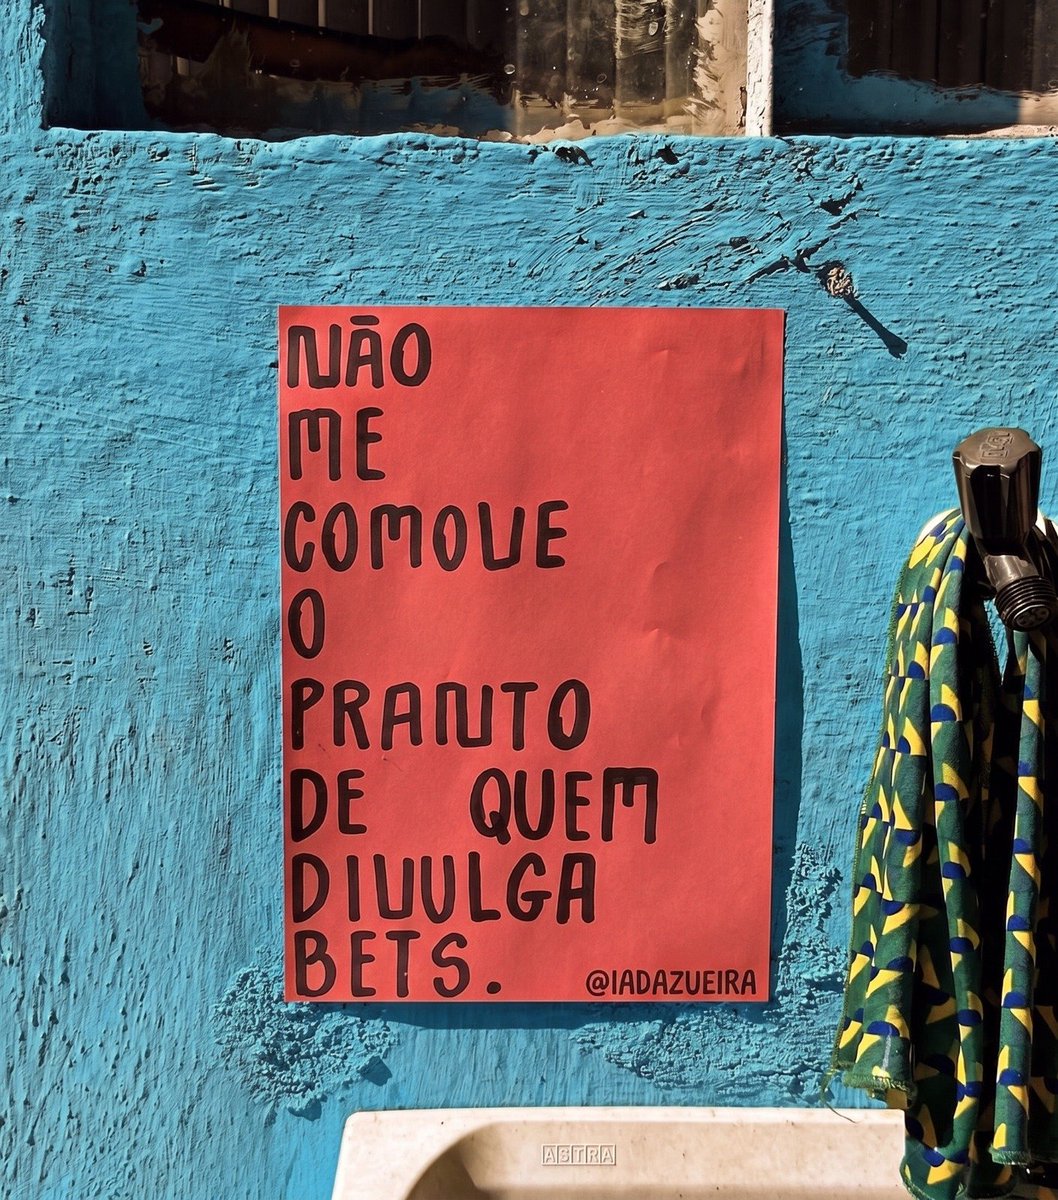 NÃO
ME
COMOVE
O
PRANTO
DE QUEM
DIVULGA
BETS.
@IADAZUEIRA
ASTRA